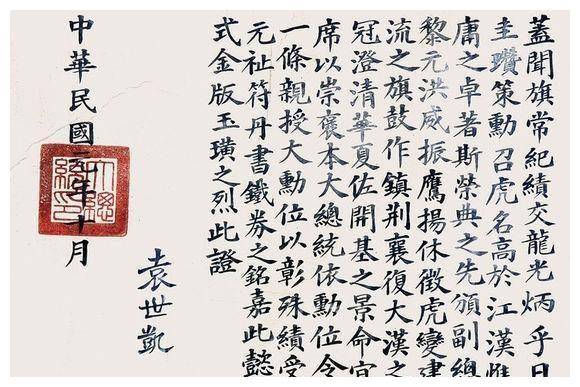 蓋聞旗常紀績交龍光炳乎日
圭瓚策勳召虎名高於江漢惟
庸之卓著斯榮典之先頒副總
黎元洪威振鷹揚休徵虎變建
流之旗鼓作鎮荆襄復大漢之
冠澄清華夏佐開基之景命宜
席以崇褒本大總統依勳位令
一條親授大勳位以彰殊績受
元祉符丹書鐵券之銘嘉此懿
式金版玉璜之烈此證
袁世凱
中華民國元年十月
大總統印